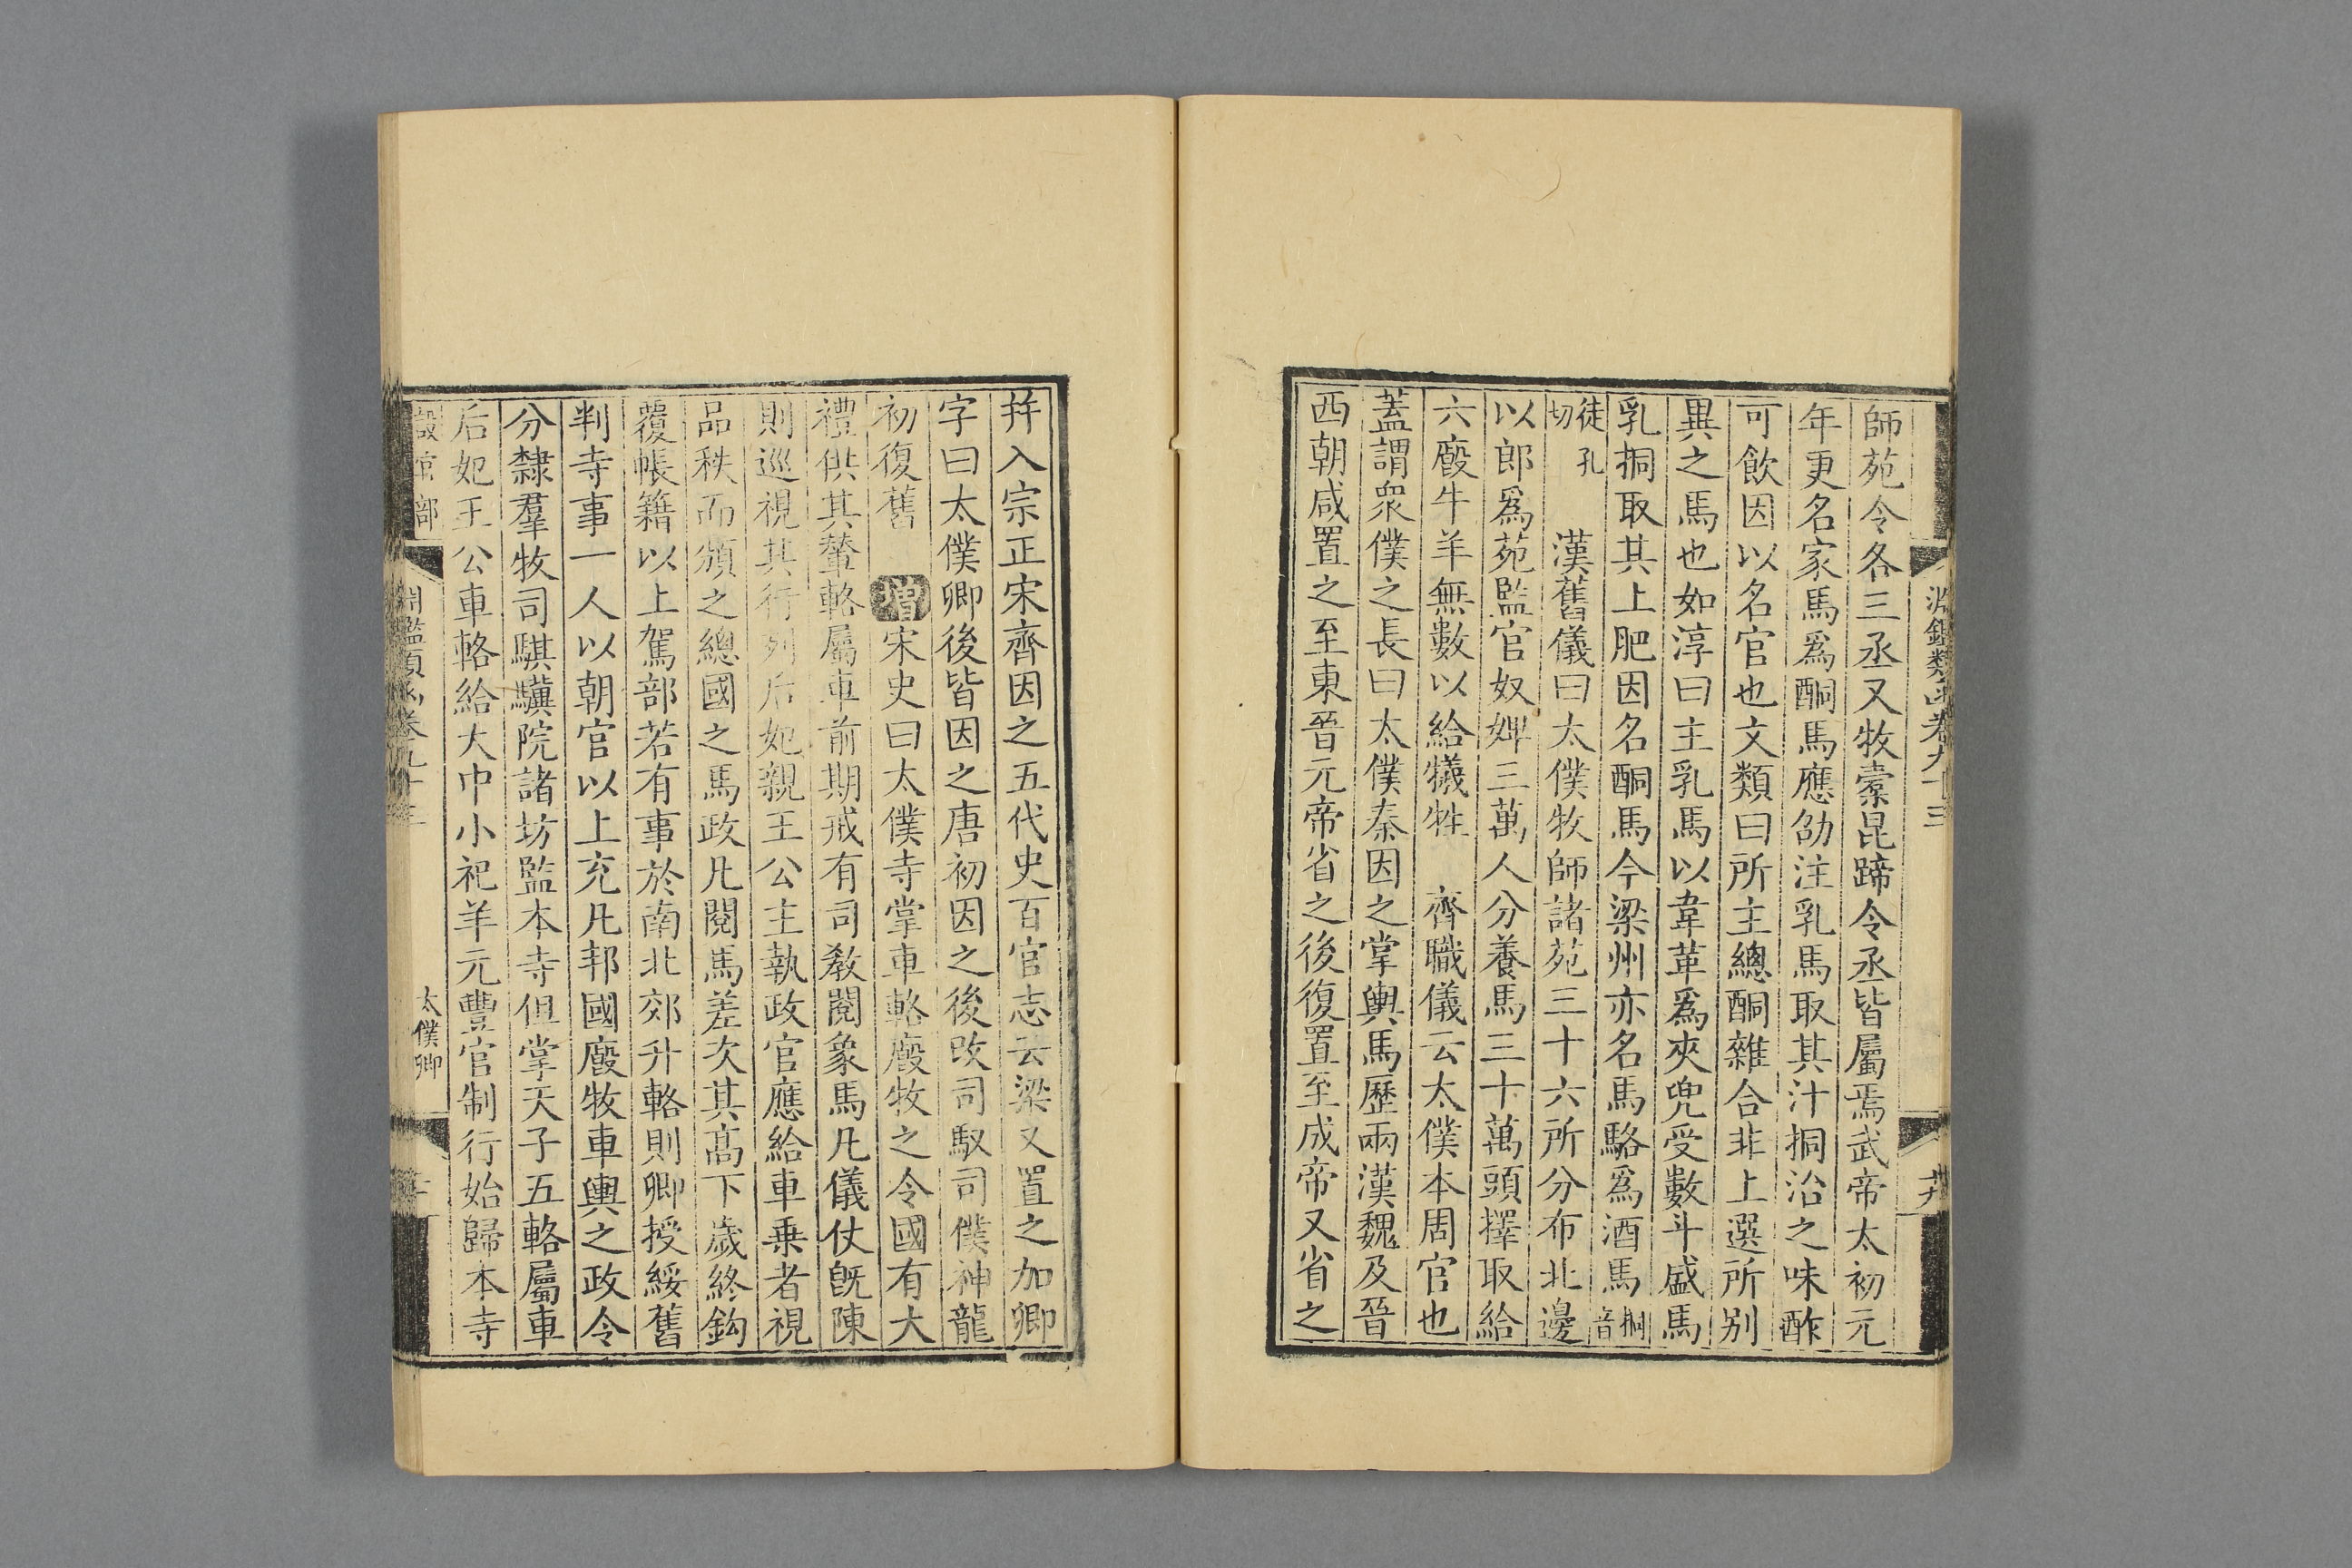 淵鑑類函卷九十三
廿九
師苑令各三丞又牧橐昆蹄令丞皆屬焉武帝太初元
年更名家馬爲酮馬應劭注乳馬取其汁挏治之味酢
可飲因以名官也文類曰所主總酮雜合非上選所别
異之馬也如淳曰主乳馬以韋革爲夾兜受數斗盛馬
乳挏取其上肥因名酮馬今梁州亦名馬駱爲酒馬挏音
徒孔切 漢舊儀曰太僕牧師諸苑三十六所分布北邊
以郎爲苑監官奴婢三萬人分養馬三十萬頭擇取給
六廄牛羊無數以給犧牲 齊職儀云太僕本周官也
蓋謂衆僕之長曰太僕秦因之掌輿馬歷兩漢魏及晉
西朝咸置之至東晉元帝省之後復置至成帝又省之
并入宗正宋齊因之五代史百官志云梁又置之加卿
字曰太僕卿後皆因之唐初因之後改司馭司僕神龍
初復舊 增宋史曰太僕寺掌車輅廄牧之令國有大
禮供其輦輅屬車前期戒有司敎閱象馬凡儀仗旣陳
則巡視其行列后妃親王公主執政官應給車乗者視
品秩而頒之總國之馬政凡閱馬差次其髙下歲終鈎
覆帳籍以上駕部若有事於南北郊升輅則卿授綏舊
判寺事一人以朝官以上充凡邦國廄牧車輿之政令
分隸羣牧司騏驥院諸坊監本寺但掌天子五輅屬車
后妃王公車輅給大中小祀羊元豐官制行始歸本寺
設官部
淵鑑類函卷九十三
太僕卿